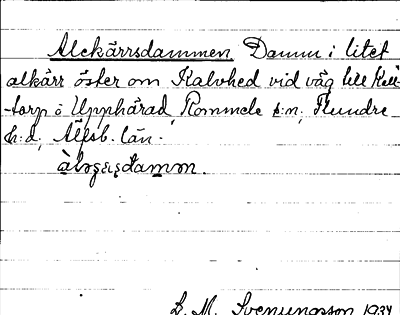 Alekärrsdammen Damm i litet
alkärr öster om Kalvhed vid väg till Kull-
torp ö Upphärad, Rommele s:n, Flundre
h:d, Älfsb. län.
L. M. Svenungsson 1934